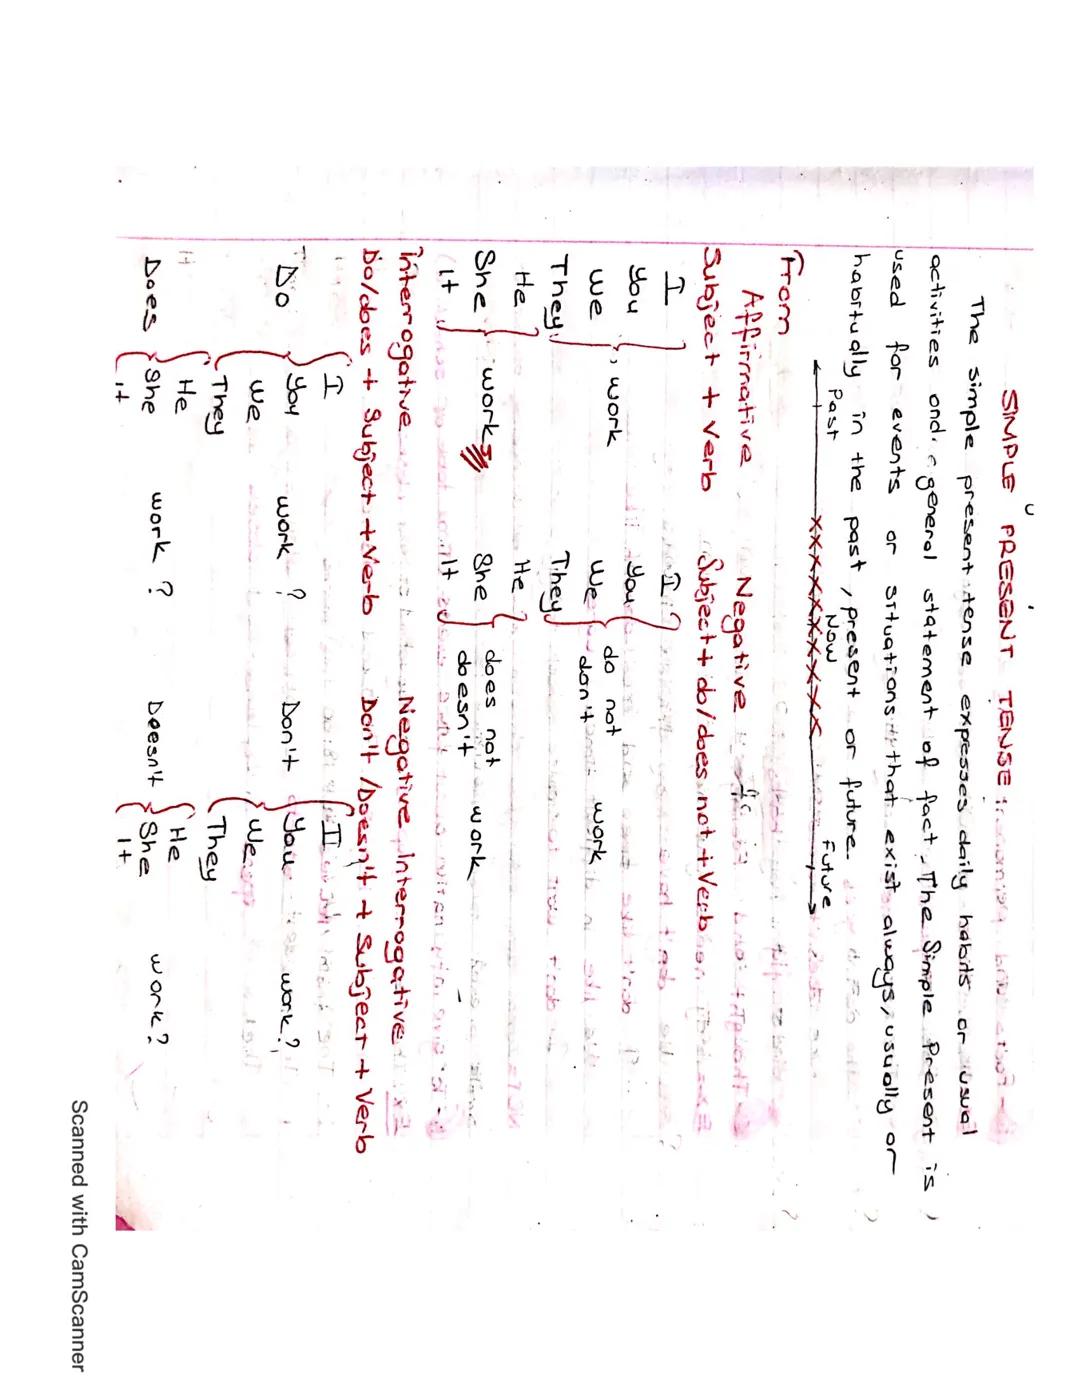 SIMPLE PRESENT TENSE
The simple present tense expesses daily habits or usual
activities and general statement of fact. The Simple Present is
used for events or situations that exist always, usually or
habitually in the past, present or future.
Past Now Future
xxxxxxxxxxxxx
From
Affirmative Negative
Subject + Verb Subject + do/does not + Verb
I I
you you do not
we work We don't work
They They
He He
She works She does not work
It It doesn't
interrogative Negative Interrogative
Do/does + Subject + Verb Don't/Doesn't + Subject + Verb
I I
Do you work ? Don't You work?
we We
They They
He He
Does She work ? Doesn't She work?
it It
Scanned with CamScanner